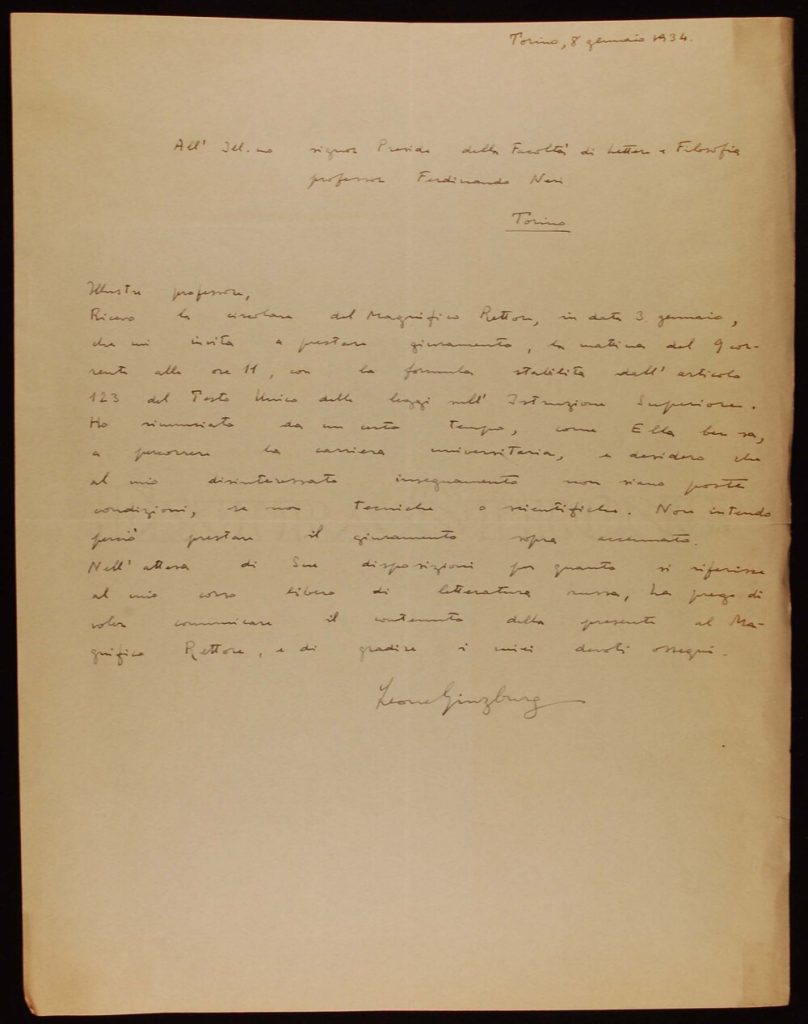 Torino, 8 gennaio 1934.
All' Ill.mo signor Preside della Facoltà di Lettere e Filosofia
professor Ferdinando Neri
Torino
Illustre professore,
Ricevo la circolare del Magnifico Rettore, in data 3 gennaio,
che mi invita a prestare giuramento, la mattina del 9 cor-
rente alle ore 11, con la formula stabilita dall' articolo
123 del Testo Unico delle leggi sull' Istruzione Superiore.
Ho rinunciato da un certo tempo, come Ella ben sa,
a percorrere la carriera universitaria, e desidero che
al mio disinteressato insegnamento non siano poste
condizioni, se non tecniche o scientifiche. Non intendo
perciò prestare il giuramento sopra accennato.
Nell' attesa di Sue disposizioni per quanto si riferisce
al mio corso libero di letteratura russa, La prego di
voler comunicare il contenuto della presente al Ma-
gnifico Rettore, e di gradire i miei devoti ossequi.
Leone Ginzburg